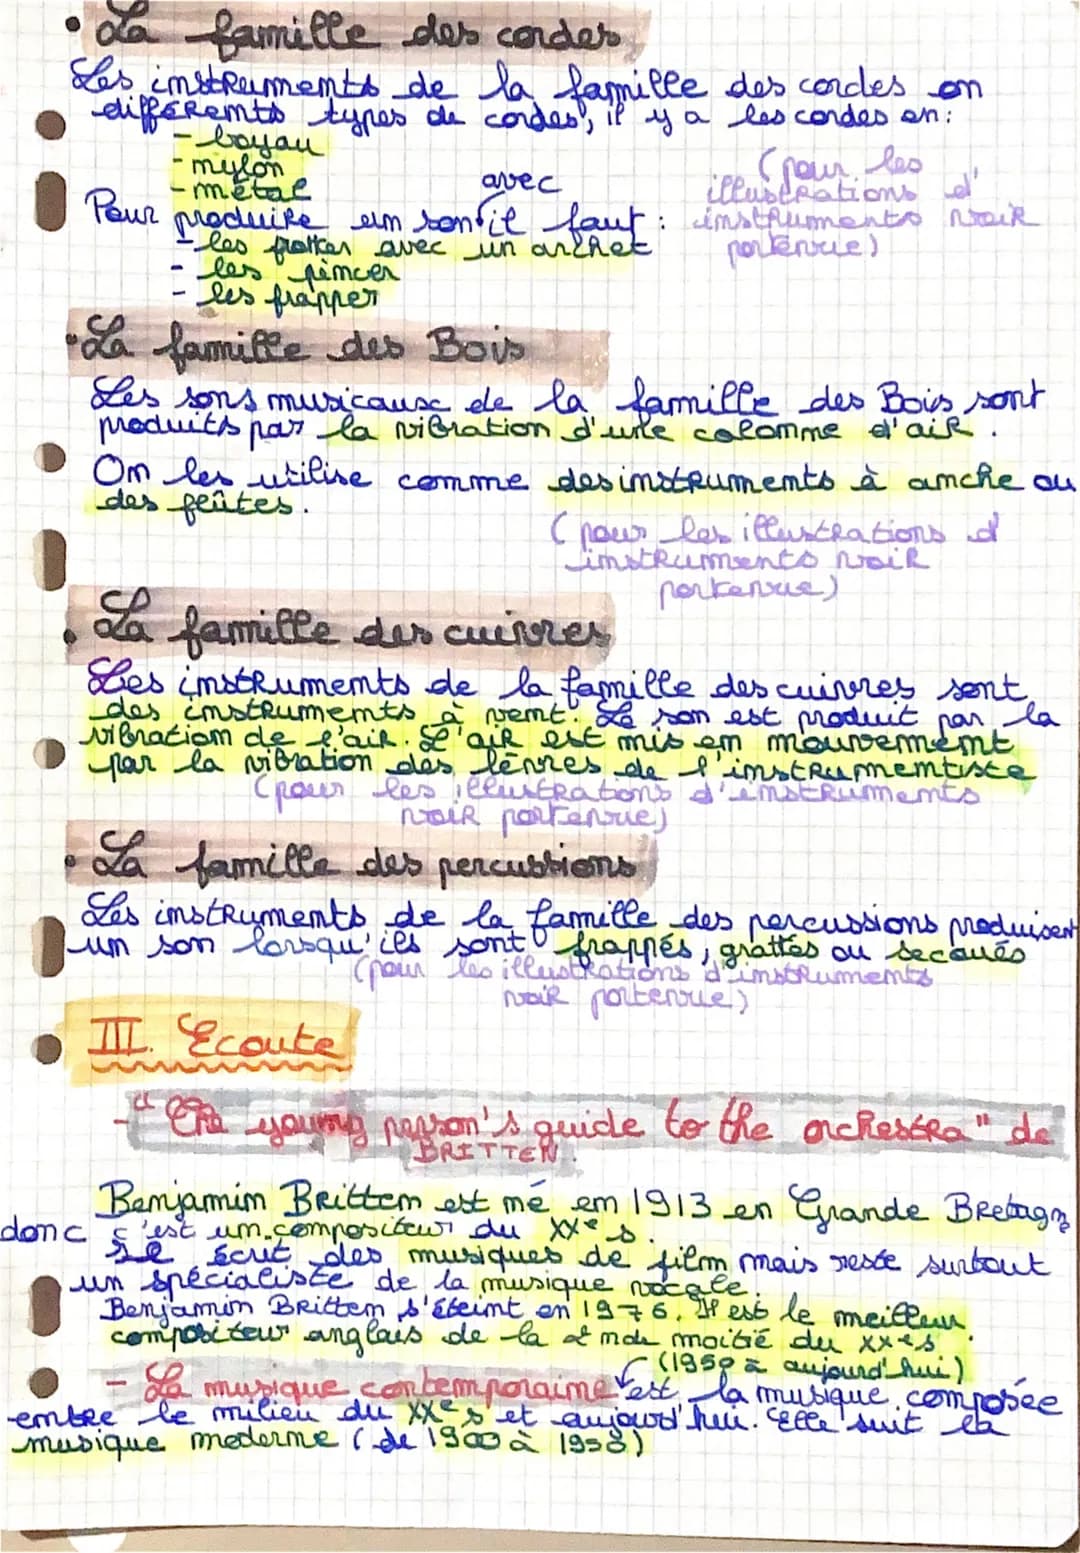 • La famille des cordes
Les instruments de la famille des cordes on
différents types de cordes, il y a les cordes en:
- boyau
- nylon
- métal
(pour les
illustrations d'
instruments voir
portenvue)
avec
Pour produire un son il faut :
- les frotter avec un archet
- les pincer
- les frapper
• La famille des Bois
Les sons musicaux de la famille des Bois sont
produits par la vibration d'une colonne d'air.
On les utilise comme des instruments à anche ou
des flûtes.
(pour les illustrations d'
instruments voir
portenvue)
• La famille des cuivres
Les instruments de la famille des cuivres sont
des instruments à vent. Le son est produit par la
vibration de l'air. L'air est mis en mouvement
par la vibration des lèvres de l'instrumentiste
(pour les illustrations d'instruments
voir portenvue)
• La famille des percussions
Les instruments de la famille des percussions produisent
un son lorsqu'ils sont frappés, grattés ou secoués
(pour les illustrations d'instruments
voir portenvue)
III. Ecoute
- "The young person's guide to the orchestra" de
BRITTEN.
Benjamin Britten est né en 1913 en Grande Bretagn
donc c'est un compositeur du XXe s.
Il écrit des musiques de film mais reste surtout
un spécialiste de la musique vocale.
Benjamin Britten s'éteint en 1976. Il est le meilleur
compositeur anglais de la 2nde moitié du XXes.
(1950 à aujourd'hui)
- La musique contemporaine est la musique composée
entre le milieu du XXe s et aujourd'hui. Elle suit la
musique moderne (de 1900 à 1950)